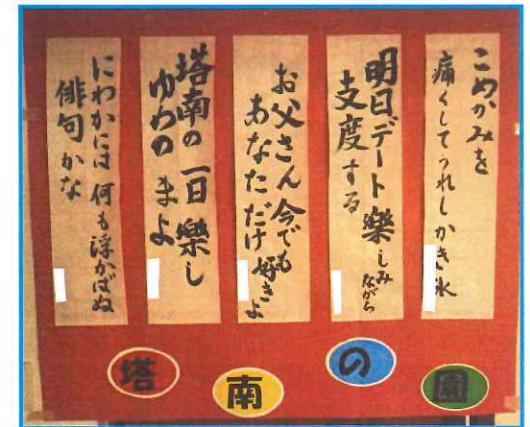 こめかみを
痛くしてうれしかき氷
明日デート楽しみながら
支度する
お父さん今でも
あなただけ好きよ
塔南の一日楽し
ゆめのまよ
にわかには何も浮かばぬ
俳句かな
塔南の園